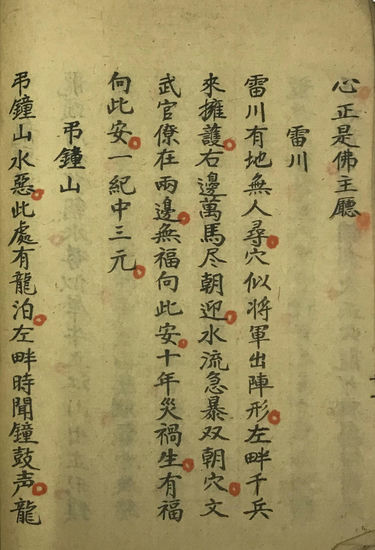 心正是佛主廳
雷川
雷川有地無人尋穴似将軍出陣形左畔千兵
來擁護右邊萬馬尽朝迎水流急暴双朝穴文
武官僚在兩邊無福向此安十年災禍生有福
向此安一紀中三元
弔鐘山
弔鐘山水惡此處有龍泊左畔時聞鐘鼓声龍